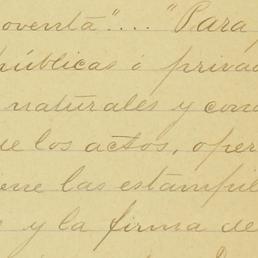 oventa".... "Para
públicas ó priva
naturales y con
e los actos, oper
ene las estampil
y la firma de